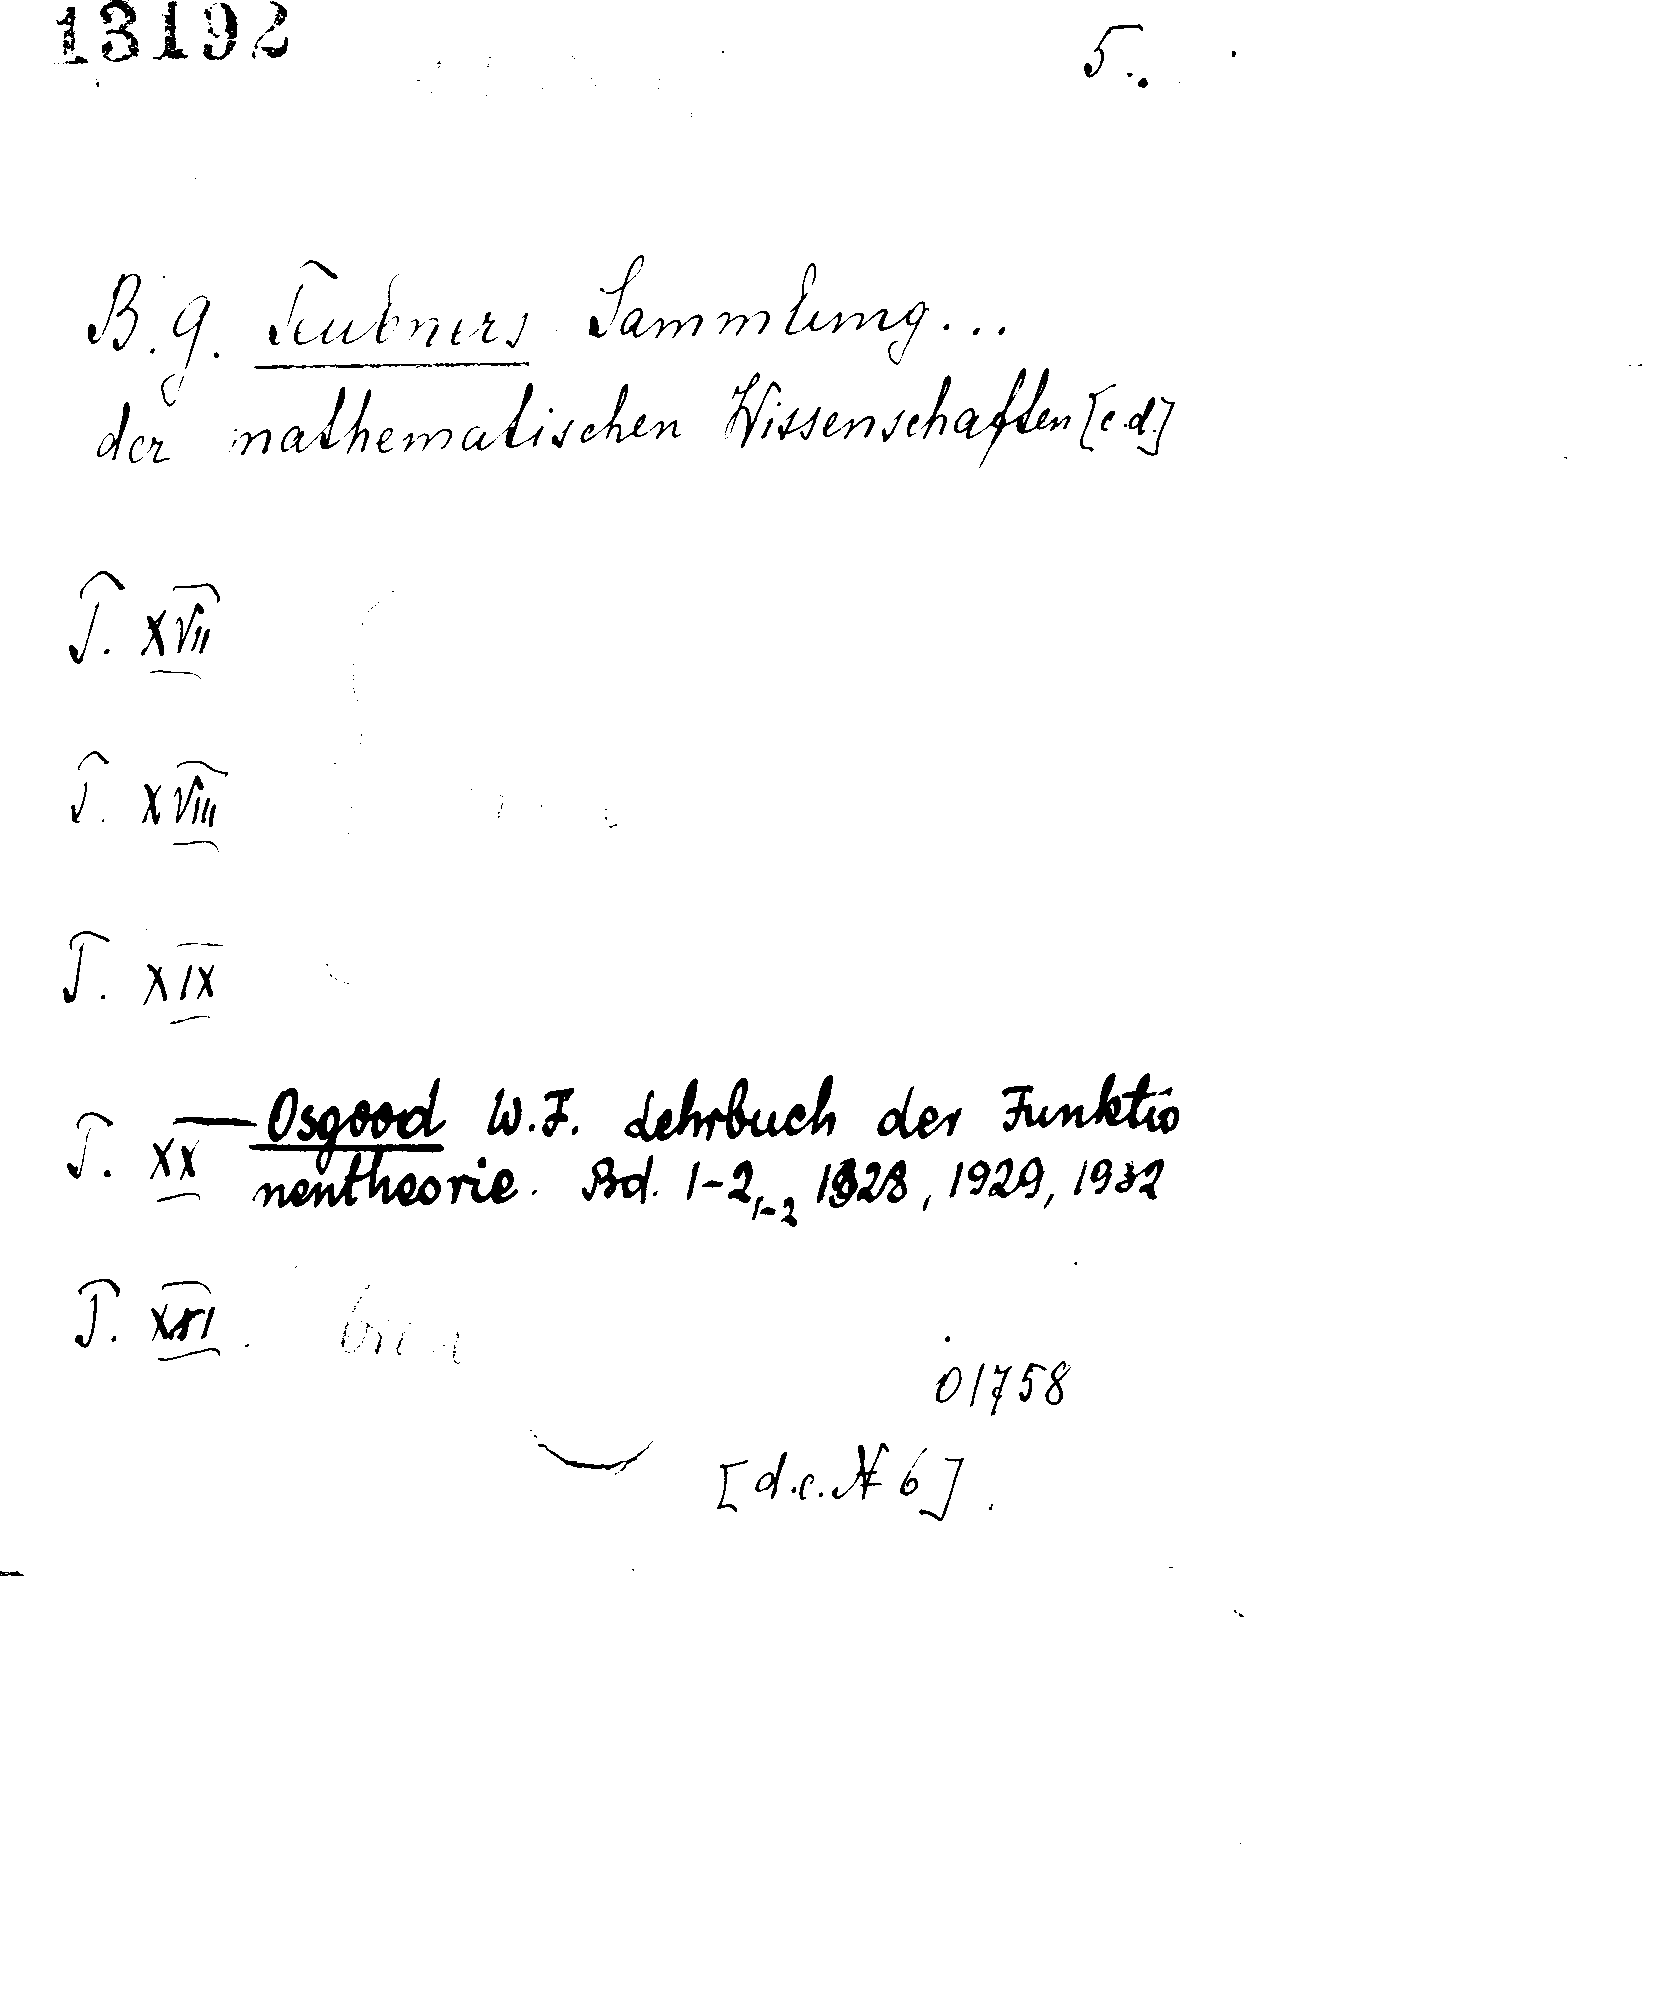 13192
5.
B.G. Teubners Sammlung...
der mathematischen Wissenschaften [c.d.]
T. XVII
T. XVIII
T. XIX
T. XX — Osgood W.F. Lehrbuch der Funktio
nentheorie. Bd. 1-2, 1-2 1928, 1929, 1932
T. XXI
01758
[d.c. № 6]